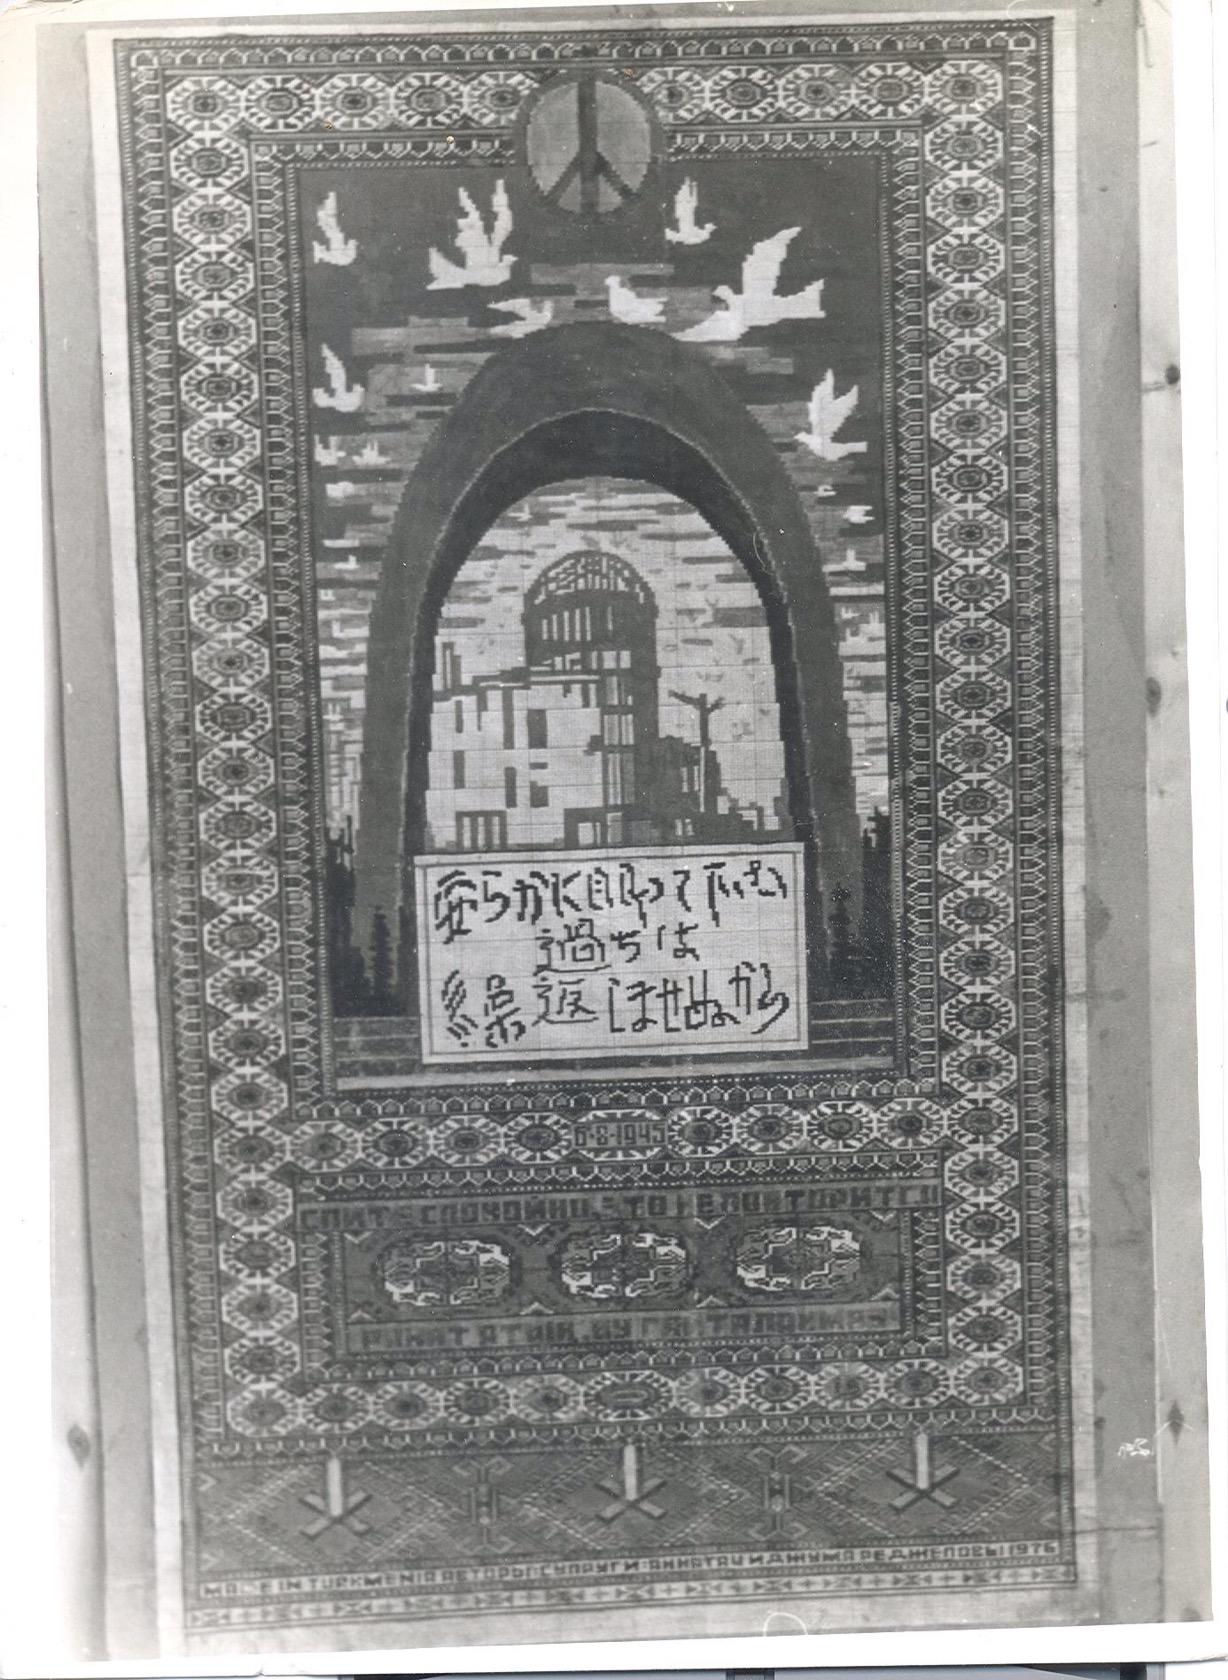 安らかに眠って下さい
過ちは
繰返しませぬから
6-8-1945
СПИТЕ СПОКОЙНО ЭТО НЕ ПОВТОРИТСЯ
РАХАТ ЯТЫҢ, БУ
MADE IN TURKMENIA АВТОРЫ:СУПРУГИ:АННАТАЧ И ДЖУМА РЕДЖЕПОВЫ 1976